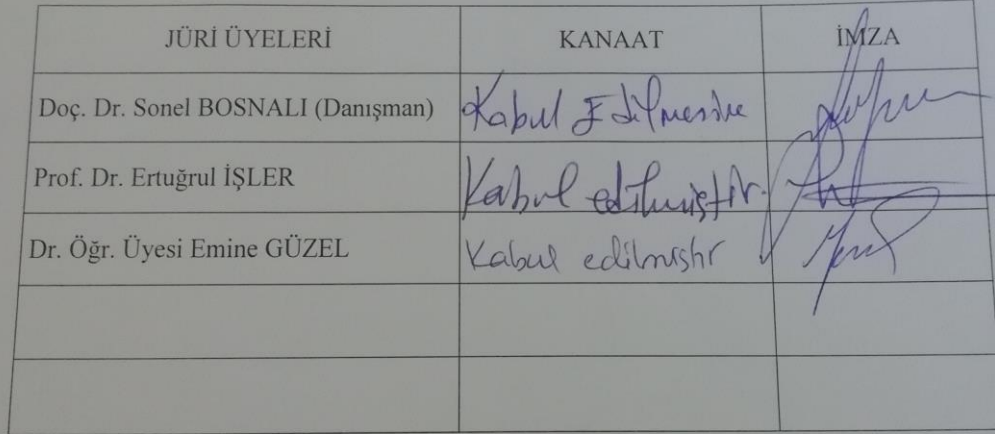 JÜRİ ÜYELERİ KANAAT İMZA
Doç. Dr. Sonel BOSNALI (Danışman) Kabul Edilmesine
Prof. Dr. Ertuğrul İŞLER Kabul edilmiştir.
Dr. Öğr. Üyesi Emine GÜZEL Kabul edilmiştir